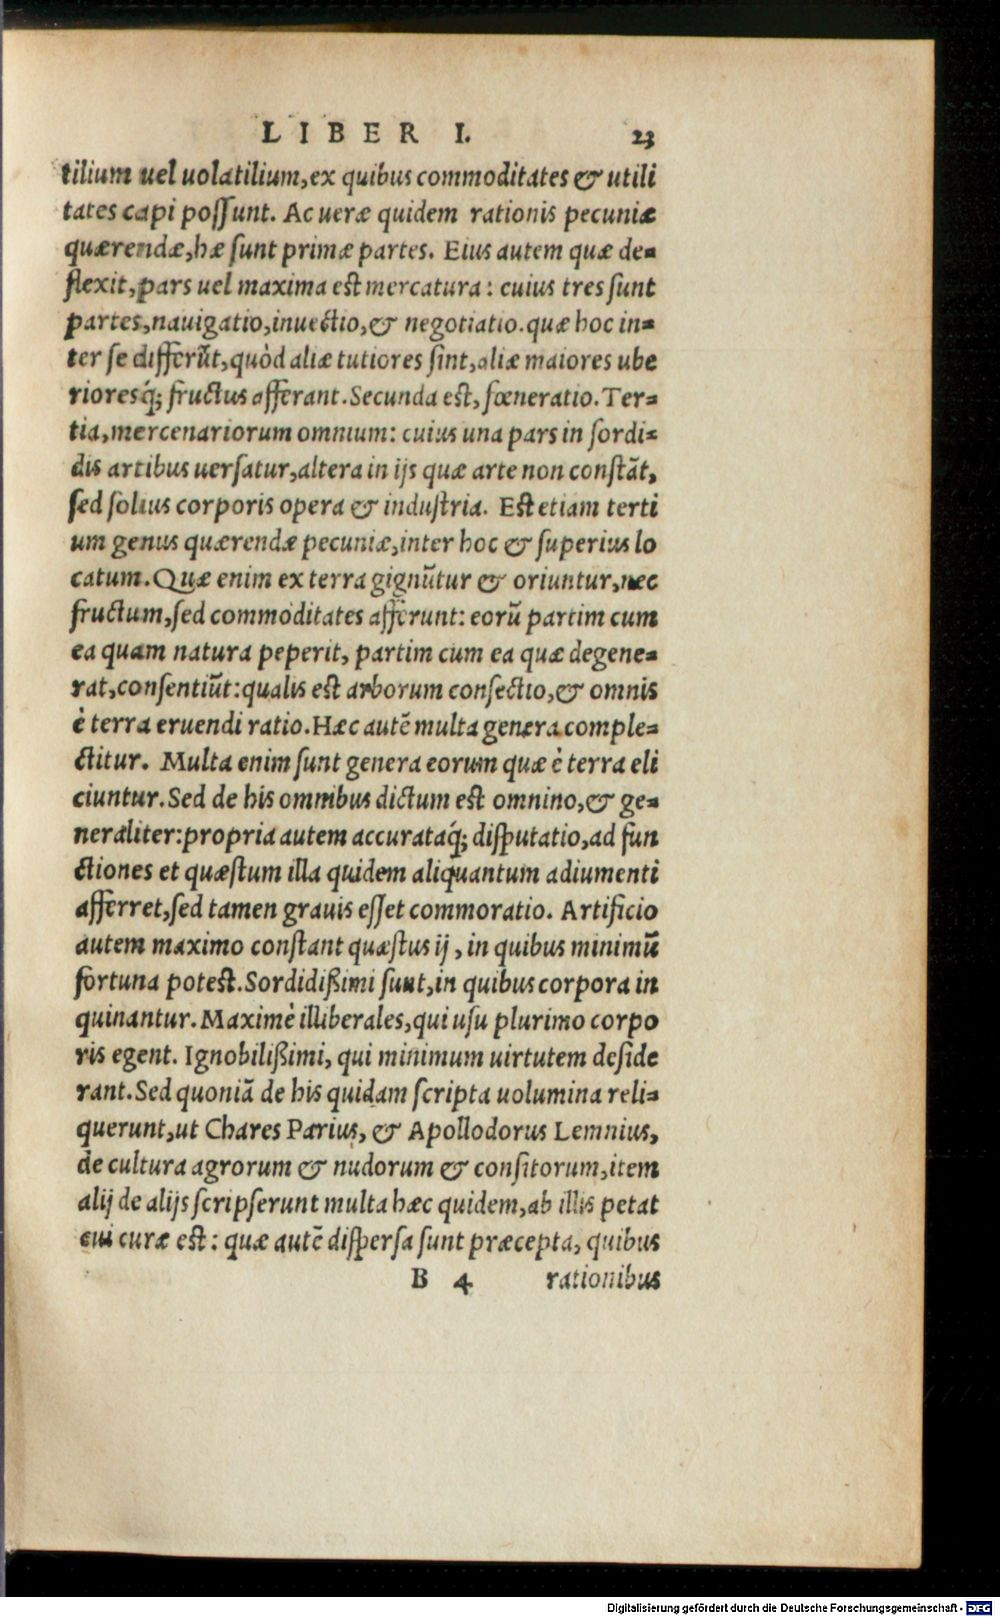 LIBER I. 23
tilium uel uolatilium, ex quibus commoditates & utili
tates capi possunt. Ac ueræ quidem rationis pecuniæ
quærendæ, hæ sunt primæ partes. Eius autem quæ de=
flexit, pars uel maxima est mercatura: cuius tres sunt
partes, nauigatio, inuectio, & negotiatio. quæ hoc in=
ter se differũt, quòd aliæ tutiores sint, aliæ maiores ube
rioresq́; fructus afferant. Secunda est, fœneratio. Ter=
tia, mercenariorum omnium: cuius una pars in sordi=
dis artibus uersatur, altera in ijs quæ arte non constãt,
sed solius corporis opera & industria. Est etiam terti
um genus quærendæ pecuniæ, inter hoc & superius lo
catum. Quæ enim ex terra gignũtur & oriuntur, nec
fructum, sed commoditates afferunt: eorũ partim cum
ea quam natura peperit, partim cum ea quæ degene=
rat, consentiũt: qualis est arborum consectio, & omnis
è terra eruendi ratio. Hæc autẽ multa genera comple=
ctitur. Multa enim sunt genera eorum quæ è terra eli
ciuntur. Sed de his omnibus dictum est omnino, & ge=
neraliter: propria autem accurataq́; disputatio, ad fun
ctiones et quæstum illa quidem aliquantum adiumenti
afferret, sed tamen grauis esset commoratio. Artificio
autem maximo constant quæstus ij, in quibus minimũ
fortuna potest. Sordidißimi sunt, in quibus corpora in
quinantur. Maximè illiberales, qui usu plurimo corpo
ris egent. Ignobilißimi, qui minimum uirtutem deside
rant. Sed quoniã de his quidam scripta uolumina reli=
querunt, ut Chares Parius, & Apollodorus Lemnius,
de cultura agrorum & nudorum & consitorum, item
alij de alijs scripserunt multa hæc quidem, ab illis petat
cui curæ est: quæ autẽ dispersa sunt præcepta, quibus
B 4 rationibus
Digitalisierung gefördert durch die Deutsche Forschungsgemeinschaft - DFG